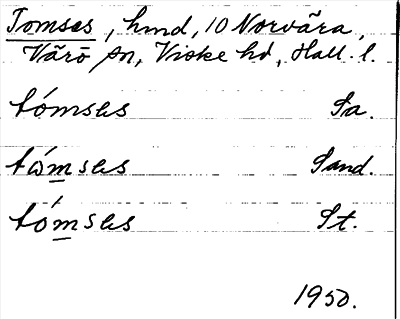 Tomses, hmd, 10 Norvära,
Värö sn, Viske hd, Hall. l.
tómsɛs Sa.
tɷ́msɛs Sand.
tómsɛs St.
1950.